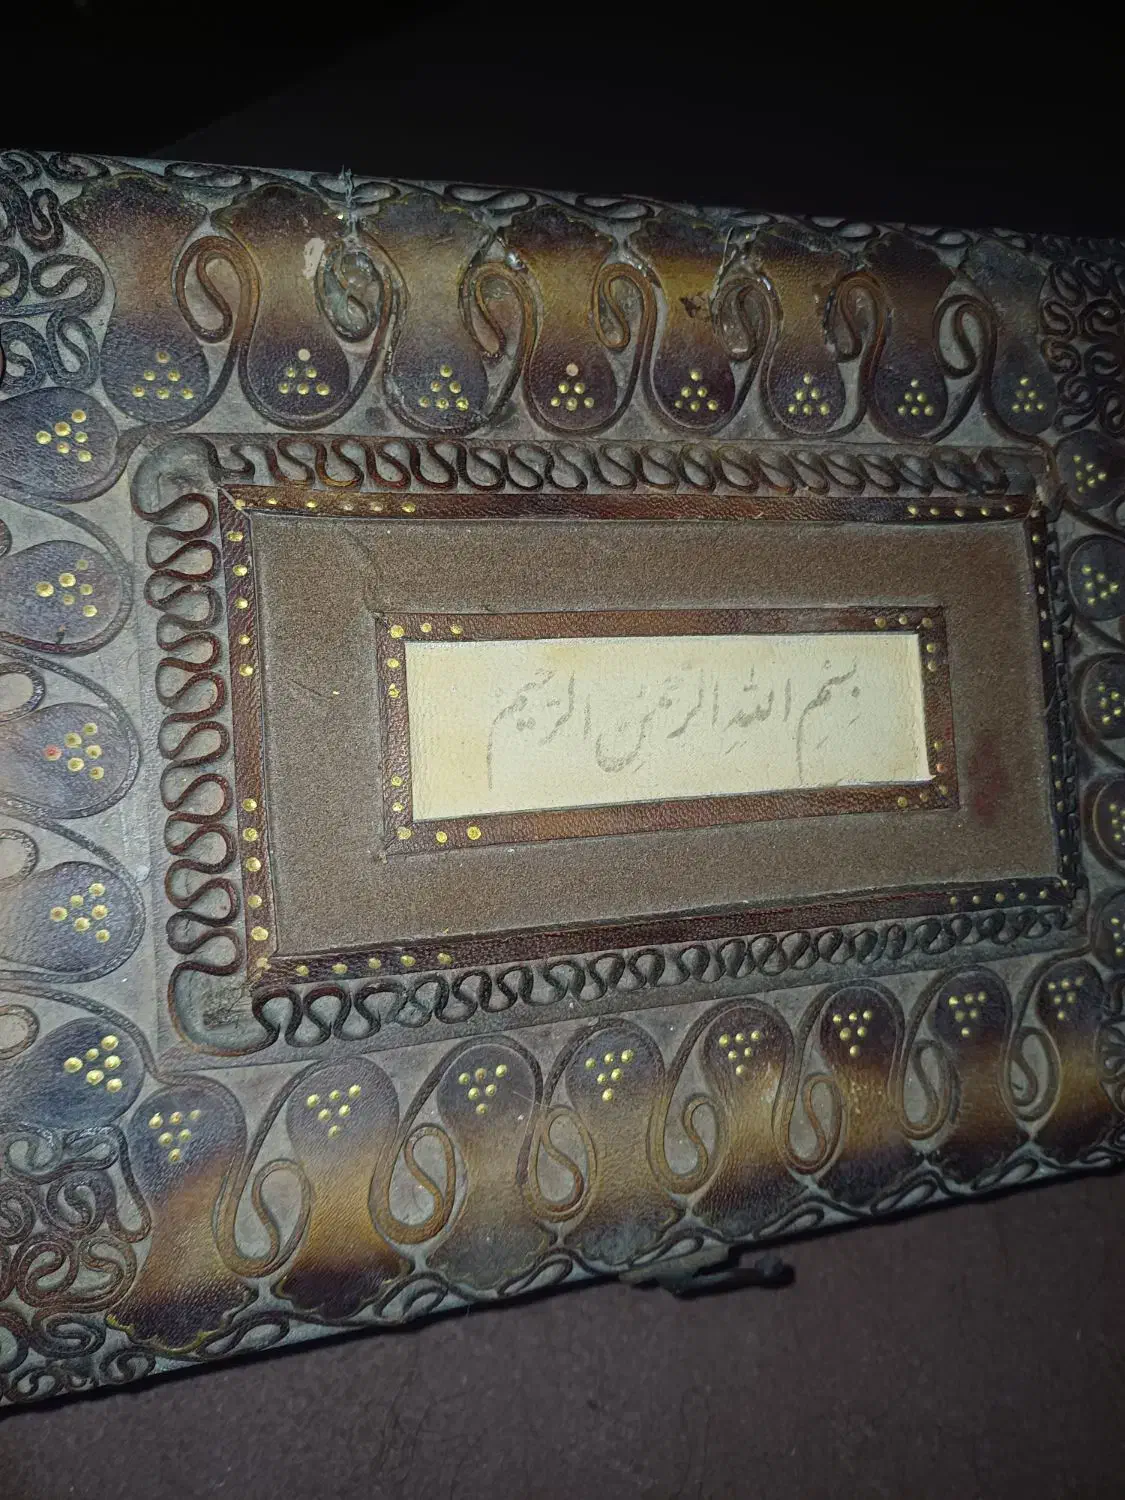 بِسْمِ اللهِ الرَّحْمنِ الرَّحیمْ